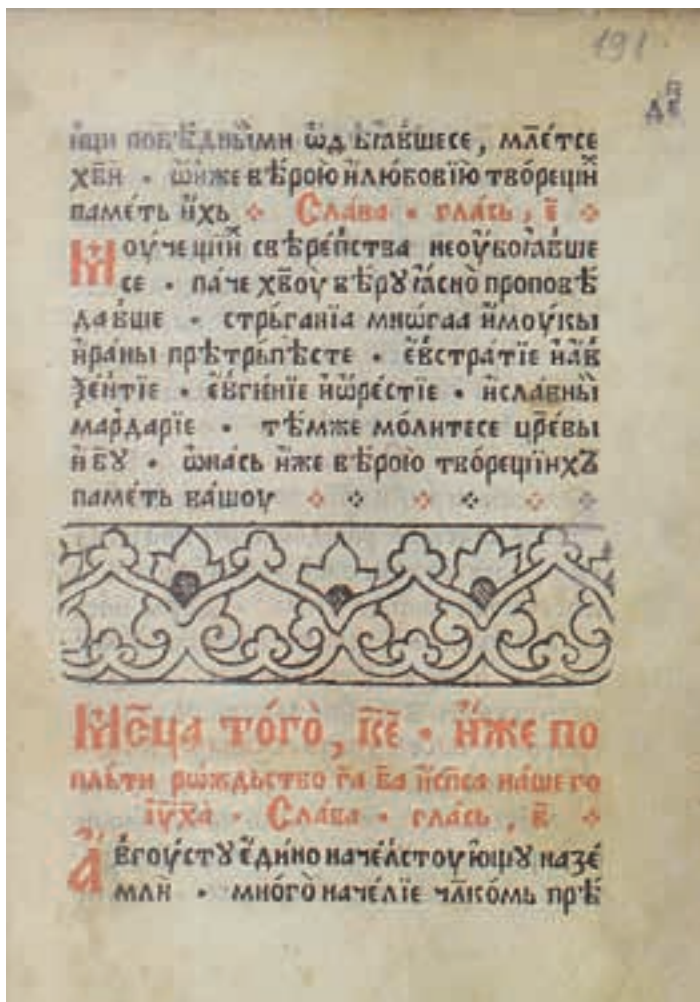 191
де҃к
нци побѣ́дныими ѡ҆дѣꙗ́вшесе, мл҃е́тсе
хв҃и • ѡ҆и҆же вѣ́рою и҆любовїю тво́рещїи
паме́ть и҆хь ⁘ Сла́ва • гла́сь, є҃ ⁘
Моу́чещїи свѣре́пства неоу҆боꙗ́вше
се • па́че хв҃оу вѣ́рꙋ ꙗ҆́сно̀ проповѣ́
давше • стрь́ганїа мнѡ́гаа и҆моу́кы
и҆ра́ны прѣтрьпѣ́сте • є҆встра́тїе и҆а҆в
ѯе́нтїе • є҆вге́нїе и҆ѡ҆ре́стїе • и҆сла́вныи
марда́рїе • тѣ́мже мо́литесе цр҃е́вы
и҆бг҃ꙋ • ѡ҆на́сь и҆́же вѣ́рою тво́рещїихъ
паме́ть ва́шоу ⁘ ⁘ ⁘ ⁘ ⁘ ⁘
Мс҃ца то́го̀, к҃е • и҆́же по
пль́ти рѡждьство̀ га҃ ба҃ и҆сп҃са на́шего
і҆у҃ха̀ • Сла́ва • гла́сь, в҃ ⁘
А҆́вгоустꙋ є҆ди́но наче́лствоую҆щꙋ назе
млѝ • мно́го наче́лїе чл҃ко́мь прѣ